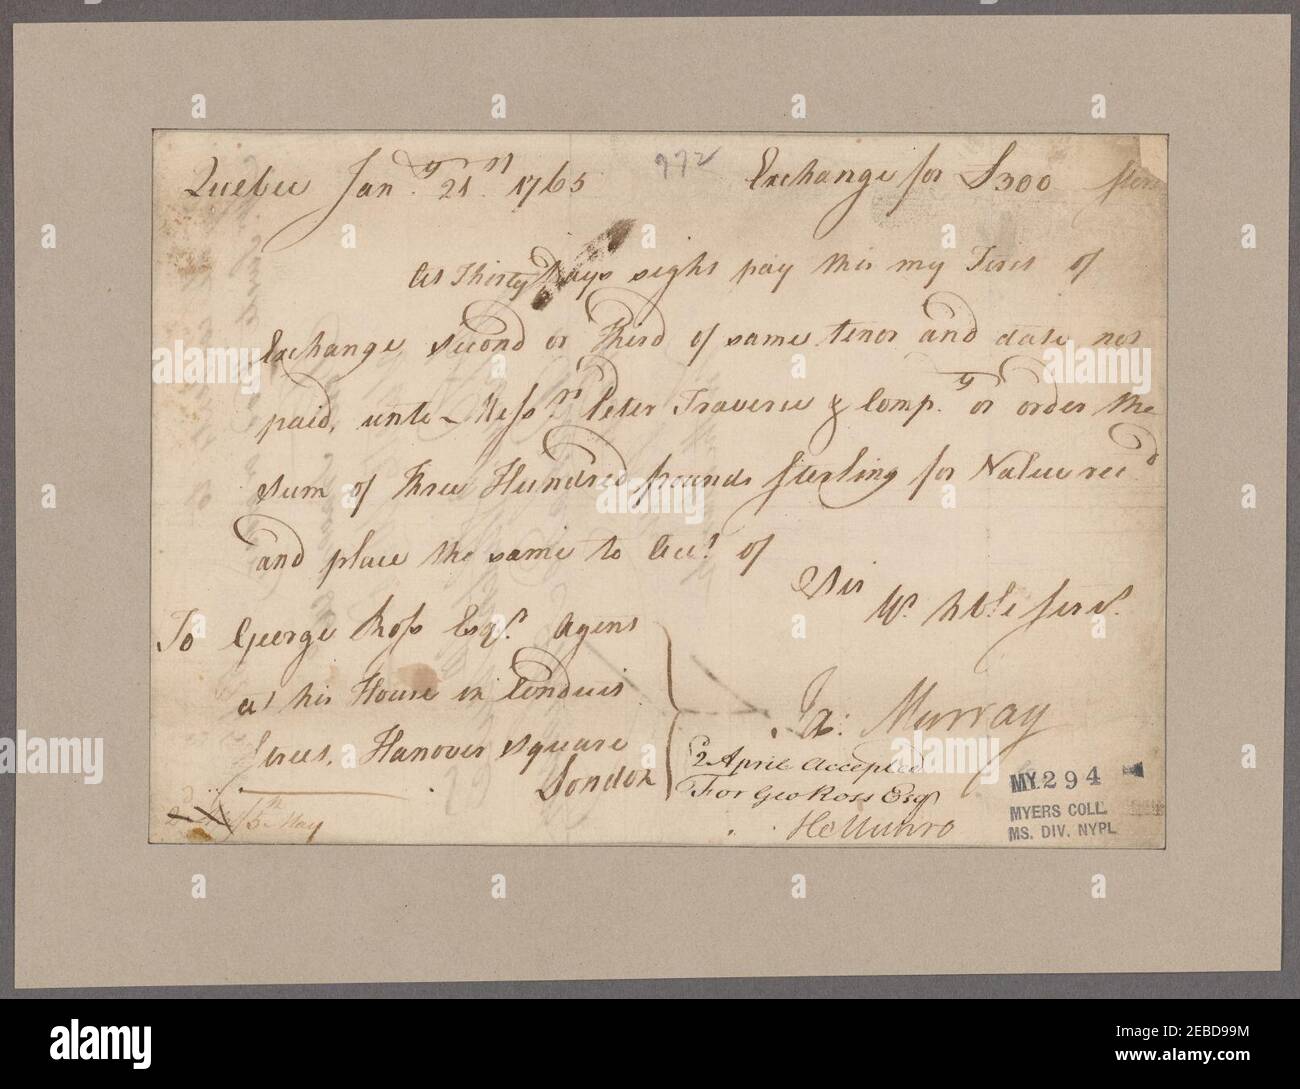 Quebec Jan.y 21st 1765 972 Exchange for £300 Ster
At Thirty Days sight pay this my First of
Exchange second or Third of same tenor and date not
paid, unto Messrs Peter Traverse & Comp.y or order the
sum of Three Hundred pounds sterling for Value rec'd
and place the same to Acct. of
Sir
Yr. Hble Serv.t
To George Ross Esqr. Agent
at his House in Conduit
Street, Hanover Square
London
Ja: Murray
2 April Accepted
For Geo Ross Esqr
He Munro
5th May
MY.294
MYERS COLL.
MS. DIV. NYPL
alamy
Image ID: 2EBD99M
www.alamy.com